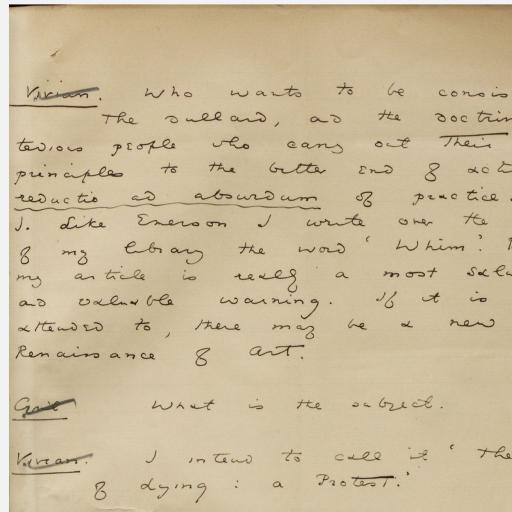 Vivian. Who wants to be consis
The dullard, and the doctrin
tedious people who carry out their
principles to the bitter end of act
reductio ad absurdum of practice.
I. Like Emerson I write over the
of my library the word 'Whim'.
my article is really a most salu
and valuable warning. If it is
attended to, there may be a new
Renaissance of Art.
Cyril What is the subject.
Vivian. I intend to call it 'The
of Lying: a Protest.'